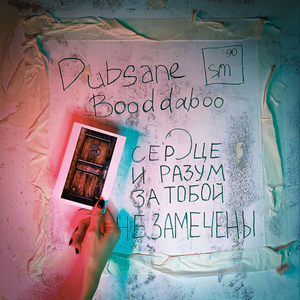 Dubsane
Booddaboo
90
sm
СЕРDЦЕ
И РАЗУМ
ЗА ТОБОЙ
НЕ ЗАМЕЧЕНЫ